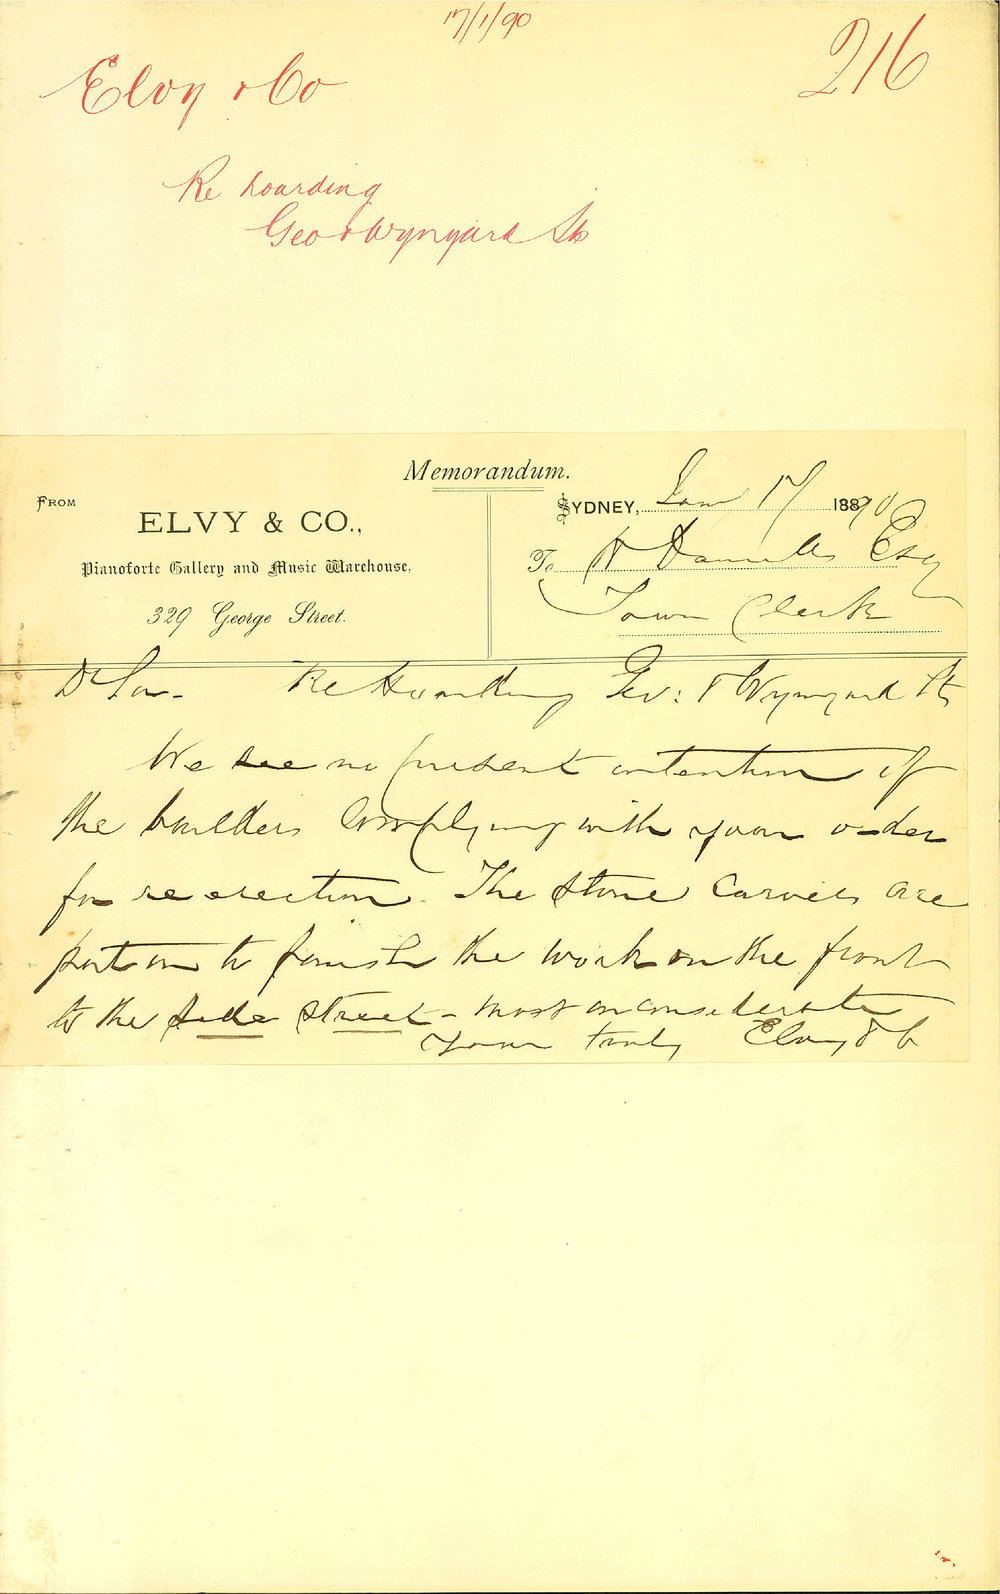 17/1/90
216
Elvy & Co
Re hoarding
Geo & Wynyard Sts
Memorandum.
FROM
ELVY & CO.,
Pianoforte Gallery and Music Warehouse,
329 George Street.
SYDNEY, Jan 17 18890
To H Daniels Esq
Town Clerk
D Sir - Re Hoarding Geo: & Wynyard Sts
We see no present intention of
the builders complying with your order
for re erection. The stone carvers are
put on to finish the work on the front
to the side street - most inconsiderate
Yours truly Elvy & Co